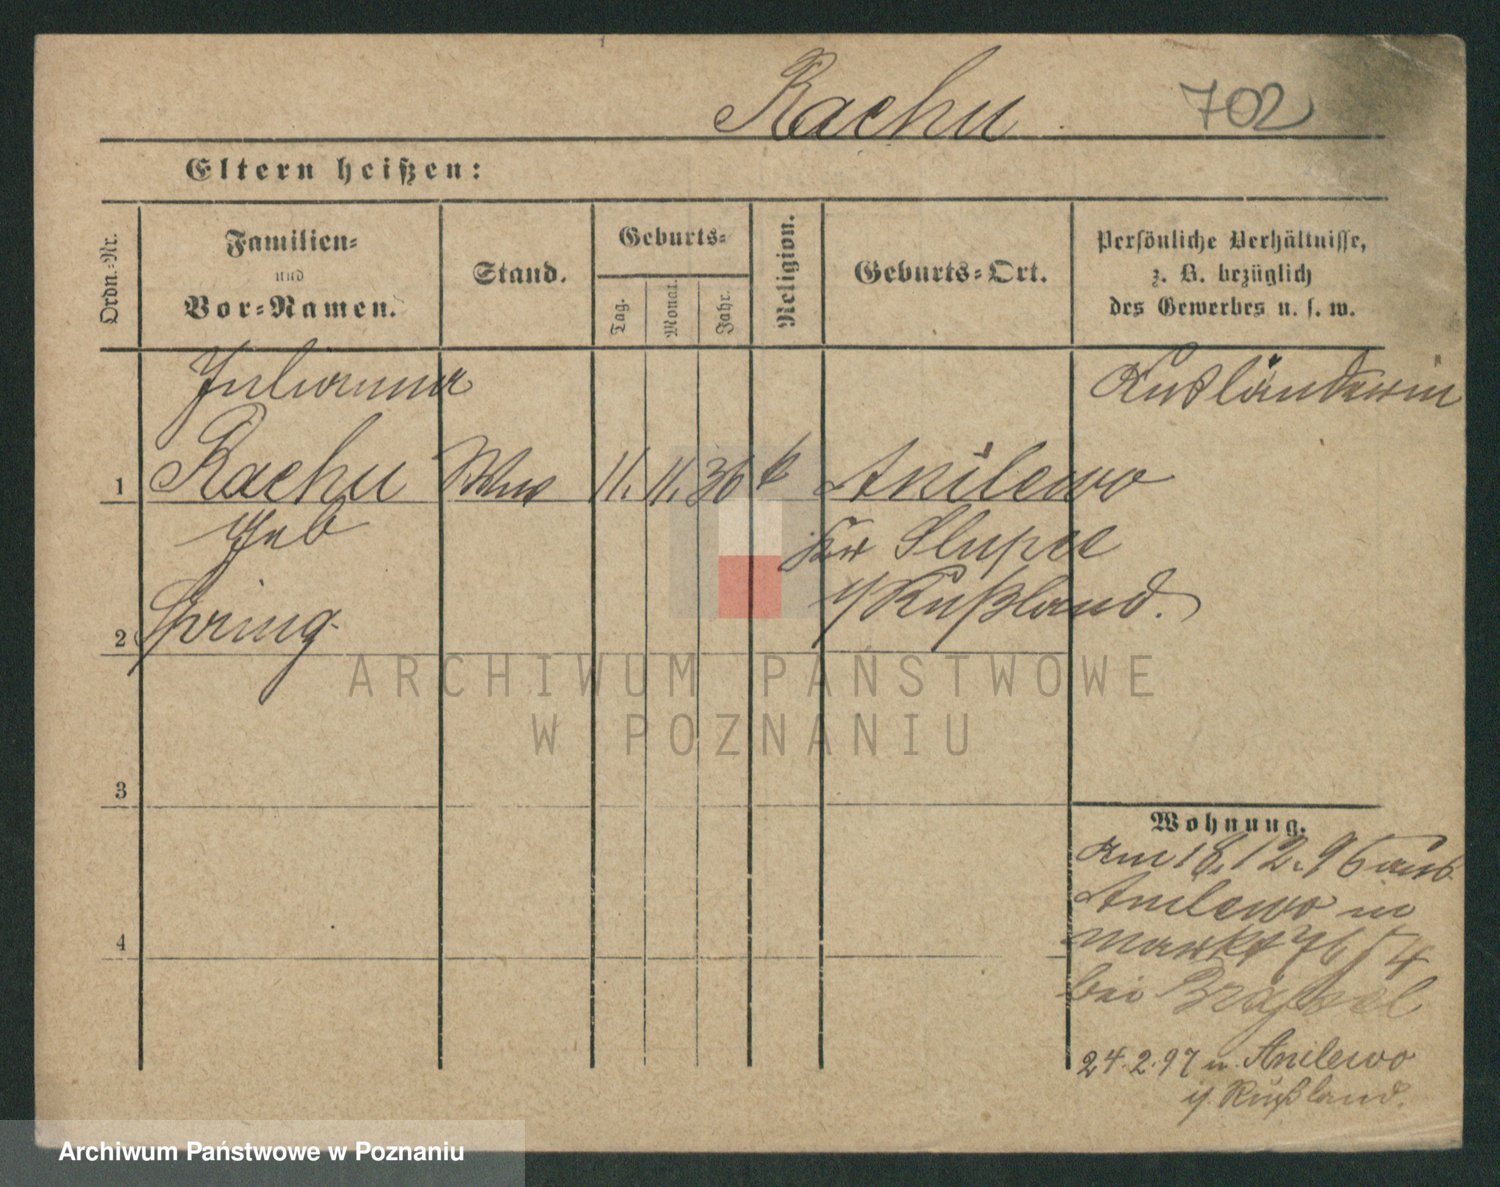 Rachu 702
Eltern heißen:
Ordn.-Nr.
Familien-
und
Vor-Namen.
Stand.
Geburts-
Tag.
Monat.
Jahr.
Religion.
Geburts-Ort.
Persönliche Verhältnisse,
z. B. bezüglich
des Gewerbes u. s. w.
Julianna
Ausländerin
1 Rachu Wwe 11. 11. 36 k Anilewo
geb Kr Slupce
2 Spring i/Rußland.
ARCHIWUM PAŃSTWOWE
W POZNANIU
3
Wohnung.
Am 18.12.96 aus
Anilewo in
4
Markt
bei
24.2.97 n. Anilewo
i/. Rußland.
Archiwum Państwowe w Poznaniu